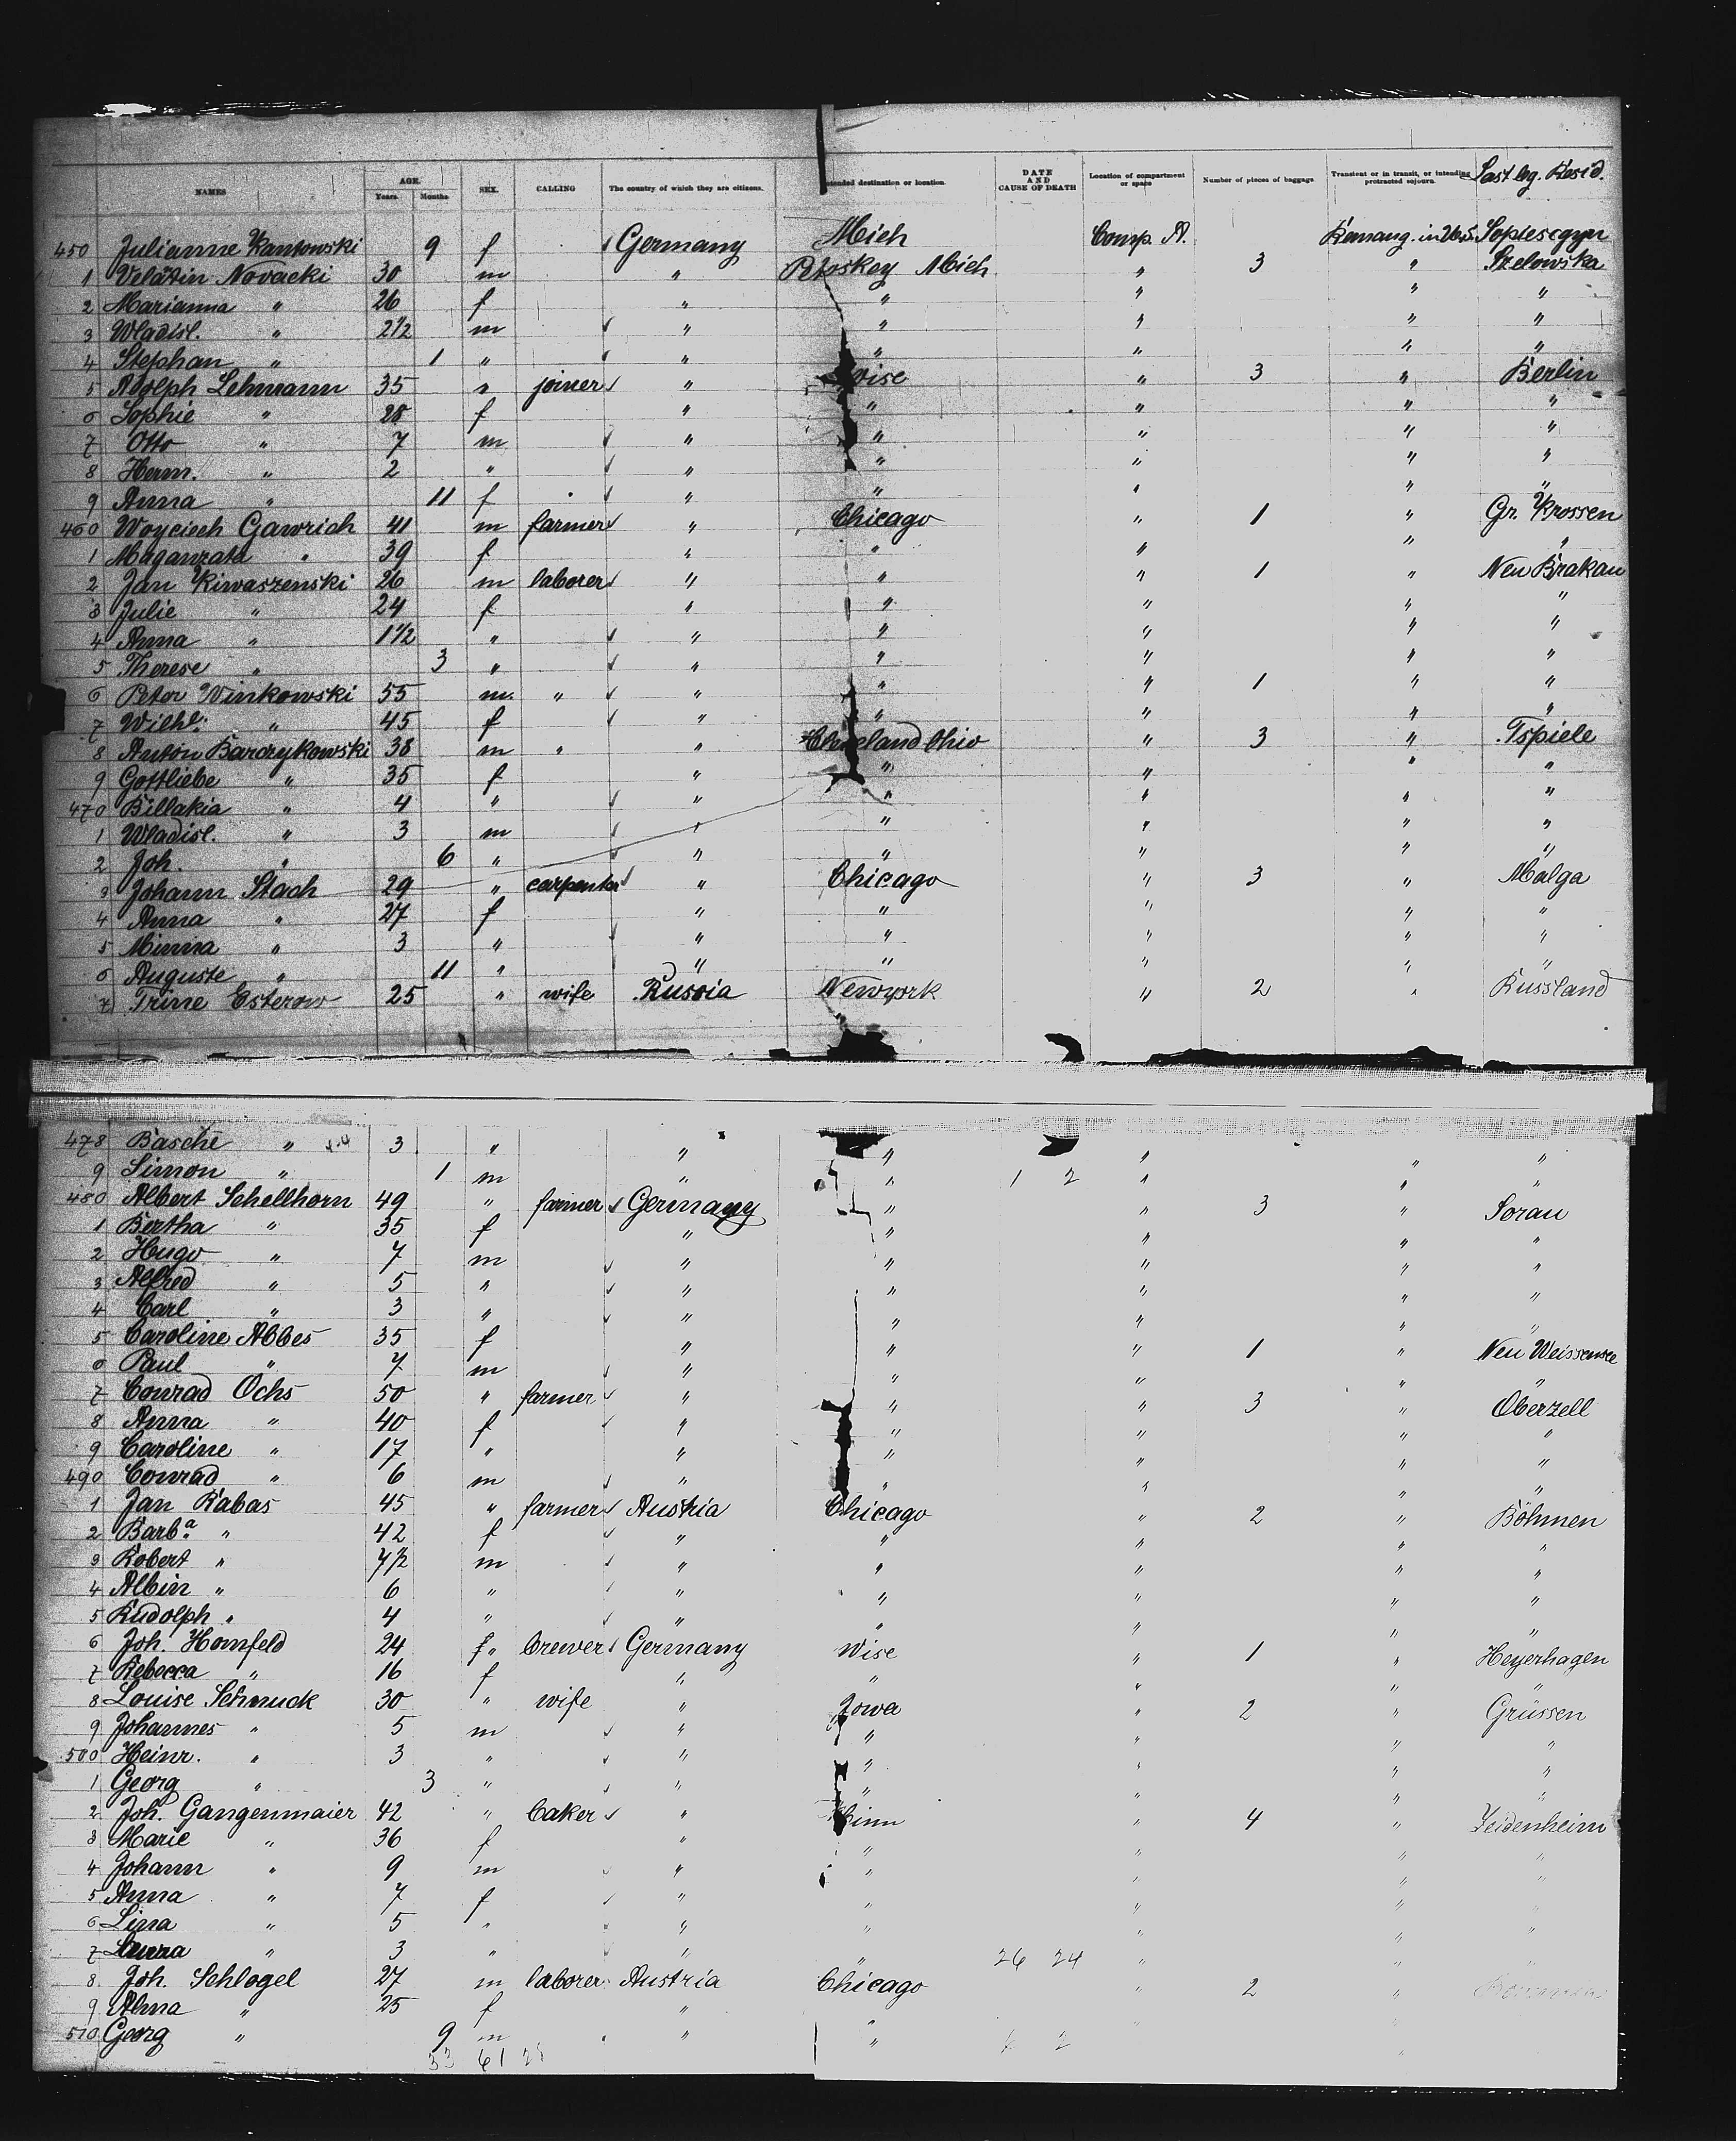 NAMES AGE. Years. Months. SEX. CALLING The country of which they are citizens. Intended destination or location. DATE AND CAUSE OF DEATH Location of compartment or space Number of pieces of baggage. Transient or in transit, or intending protracted sojourn. Last leg. Resid.
450 Julianne Kantowski 9 f Germany Mich Comp. A.
1 Velatin Novacki 30 m " Mich " 3 " Szelowska
2 Marianna " 26 f " " " " "
3 Wladisl. " 2 1/2 m " " " " "
4 Stephan " 1 " " " " " "
5 Adolph Lehmann 35 " joiner " Wise " 3 " Berlin
6 Sophie " 28 f " " " " "
7 Otto " 7 m " " " " "
8 Herm. " 2 " " " " " "
9 Anna " 11 f " " " " "
460 Woyciech Gawrich 41 m farmer " Chicago " 1 " Gr. Krossen
1 Maganzata " 39 f " " " " "
2 Jan Kiwaszenski 26 m laborer " " " 1 " Neu Brakau
3 Julie " 24 f " " " " "
4 Anna " 1 1/2 " " " " " "
5 Therese " 3 " " " " " "
6 Peter Winkowski 55 m " " " " 1 " "
7 Wilhe. " 45 f " " " " "
8 Anton Barczykowski 38 m " " Cleveland Ohio " 3 " Tspiele
9 Gottliebe " 35 f " " " " "
470 Billakia " 4 " " " " " "
1 Wladisl. " 3 m " " " " "
2 Joh. " 6 " " " " " "
3 Johann Stach 29 " carpenter " Chicago " 3 " Malga
4 Anna " 27 f " " " " "
5 Minna " 3 " " " " " "
6 Auguste " 11 " " " " " "
7 Trine Esterow 25 " wife Russia Newyork " 2 " Russland
478 Basche " 3 " " " " " "
9 Simon " 1 m " " 1 2 " " "
480 Albert Schellhorn 49 " farmer Germany " " 3 " Sorau
1 Bertha " 35 f " " " " "
2 Hugo " 7 m " " " " "
3 Alfred " 5 " " " " " "
4 Carl " 3 " " " " " "
5 Caroline Abbes 35 f " " " 1 " Neu Weissensee
6 Paul " 7 m " " " " "
7 Conrad Ochs 50 " farmer " " " 3 " Oberzell
8 Anna " 40 f " " " " "
9 Caroline " 17 " " " " " "
490 Conrad " 6 m " " " " "
1 Jan Kabas 45 " farmer Austria Chicago " 2 " Böhmen
2 Barba. " 42 f " " " " "
3 Robert " 7 1/2 m " " " " "
4 Albin " 6 " " " " " "
5 Rudolph " 4 " " " " " "
6 Joh. Homfeld 24 f " brewer Germany Wise " 1 " Heyerhagen
7 Rebecca " 16 f " " " " "
8 Louise Schmuck 30 " wife " Iowa " 2 " Grüssen
9 Johannes " 5 m " " " " "
500 Heinr. " 3 " " " " " "
1 Georg " 3 " " " " " "
2 Joh. Gangenmaier 42 " baker " Minn " 4 " Zeidenheim
3 Marie " 36 f " " " " "
4 Johann " 9 m " " " " "
5 Anna " 7 f " " " " "
6 Lina " 5 " " " " " "
7 Laura " 3 " " " 26 24 " " "
8 Joh. Schlogel 27 m laborer Austria Chicago " 2 "
9 Alma " 25 f " " " "
510 Georg " 9 m " " 2 "
33 61 28